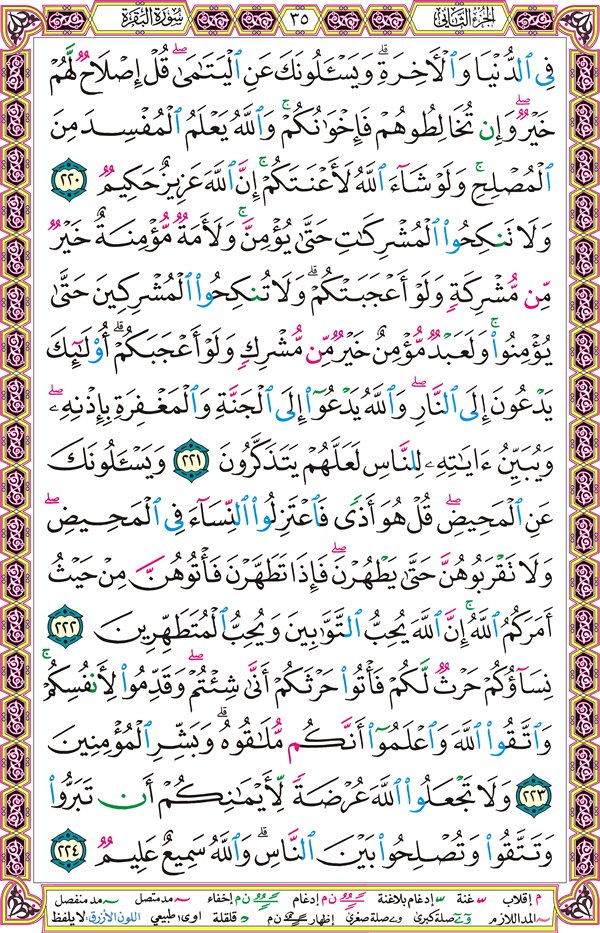 الجزء الثاني ٣٥ سورة البقرة
فِى ٱلدُّنْيَا وَٱلْـَٔاخِرَةِ ۗ وَيَسْـَٔلُونَكَ عَنِ ٱلْيَتَـٰمَىٰ ۖ قُلْ إِصْلَاحٌ لَّهُمْ
خَيْرٌ ۖ وَإِن تُخَالِطُوهُمْ فَإِخْوَٰنُكُمْ ۚ وَٱللَّهُ يَعْلَمُ ٱلْمُفْسِدَ مِنَ
ٱلْمُصْلِحِ ۚ وَلَوْ شَآءَ ٱللَّهُ لَأَعْنَتَكُمْ ۚ إِنَّ ٱللَّهَ عَزِيزٌ حَكِيمٌ ٢٢٠
وَلَا تَنكِحُوا۟ ٱلْمُشْرِكَـٰتِ حَتَّىٰ يُؤْمِنَّ ۚ وَلَأَمَةٌ مُّؤْمِنَةٌ خَيْرٌ
مِّن مُّشْرِكَةٍ وَلَوْ أَعْجَبَتْكُمْ ۗ وَلَا تُنكِحُوا۟ ٱلْمُشْرِكِينَ حَتَّىٰ
يُؤْمِنُوا۟ ۚ وَلَعَبْدٌ مُّؤْمِنٌ خَيْرٌ مِّن مُّشْرِكٍ وَلَوْ أَعْجَبَكُمْ ۗ أُو۟لَـٰٓئِكَ
يَدْعُونَ إِلَى ٱلنَّارِ ۖ وَٱللَّهُ يَدْعُوٓا۟ إِلَى ٱلْجَنَّةِ وَٱلْمَغْفِرَةِ بِإِذْنِهِۦ ۖ
وَيُبَيِّنُ ءَايَـٰتِهِۦ لِلنَّاسِ لَعَلَّهُمْ يَتَذَكَّرُونَ ٢٢١ وَيَسْـَٔلُونَكَ
عَنِ ٱلْمَحِيضِ ۖ قُلْ هُوَ أَذًى فَٱعْتَزِلُوا۟ ٱلنِّسَآءَ فِى ٱلْمَحِيضِ ۖ
وَلَا تَقْرَبُوهُنَّ حَتَّىٰ يَطْهُرْنَ ۖ فَإِذَا تَطَهَّرْنَ فَأْتُوهُنَّ مِنْ حَيْثُ
أَمَرَكُمُ ٱللَّهُ ۚ إِنَّ ٱللَّهَ يُحِبُّ ٱلتَّوَّٰبِينَ وَيُحِبُّ ٱلْمُتَطَهِّرِينَ ٢٢٢
نِسَآؤُكُمْ حَرْثٌ لَّكُمْ فَأْتُوا۟ حَرْثَكُمْ أَنَّىٰ شِئْتُمْ ۖ وَقَدِّمُوا۟ لِأَنفُسِكُمْ ۚ
وَٱتَّقُوا۟ ٱللَّهَ وَٱعْلَمُوٓا۟ أَنَّكُم مُّلَـٰقُوهُ ۗ وَبَشِّرِ ٱلْمُؤْمِنِينَ
٢٢٣ وَلَا تَجْعَلُوا۟ ٱللَّهَ عُرْضَةً لِّأَيْمَـٰنِكُمْ أَن تَبَرُّوا۟
وَتَتَّقُوا۟ وَتُصْلِحُوا۟ بَيْنَ ٱلنَّاسِ ۗ وَٱللَّهُ سَمِيعٌ عَلِيمٌ ٢٢٤
م إقلاب غنة إدغام بلاغنة ن م إدغام ن م إخفاء مد متصل مد منفصل
المد اللازم صلة كبرى صلة صغرى إظهار ن م قلقلة اوى طبيعي اللون الأزرق: لا يلفظ